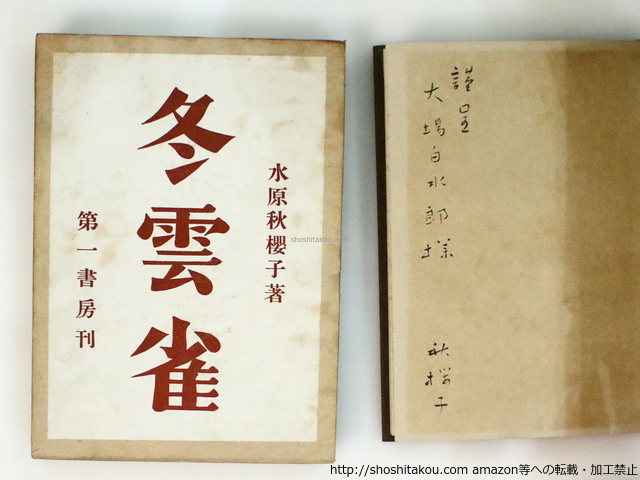 冬雲雀
水原秋櫻子著
第一書房刊
謹呈
大場白水郎様
秋櫻子
shoshitakou.com
http://shoshitakou.com amazon等への転載・加工禁止